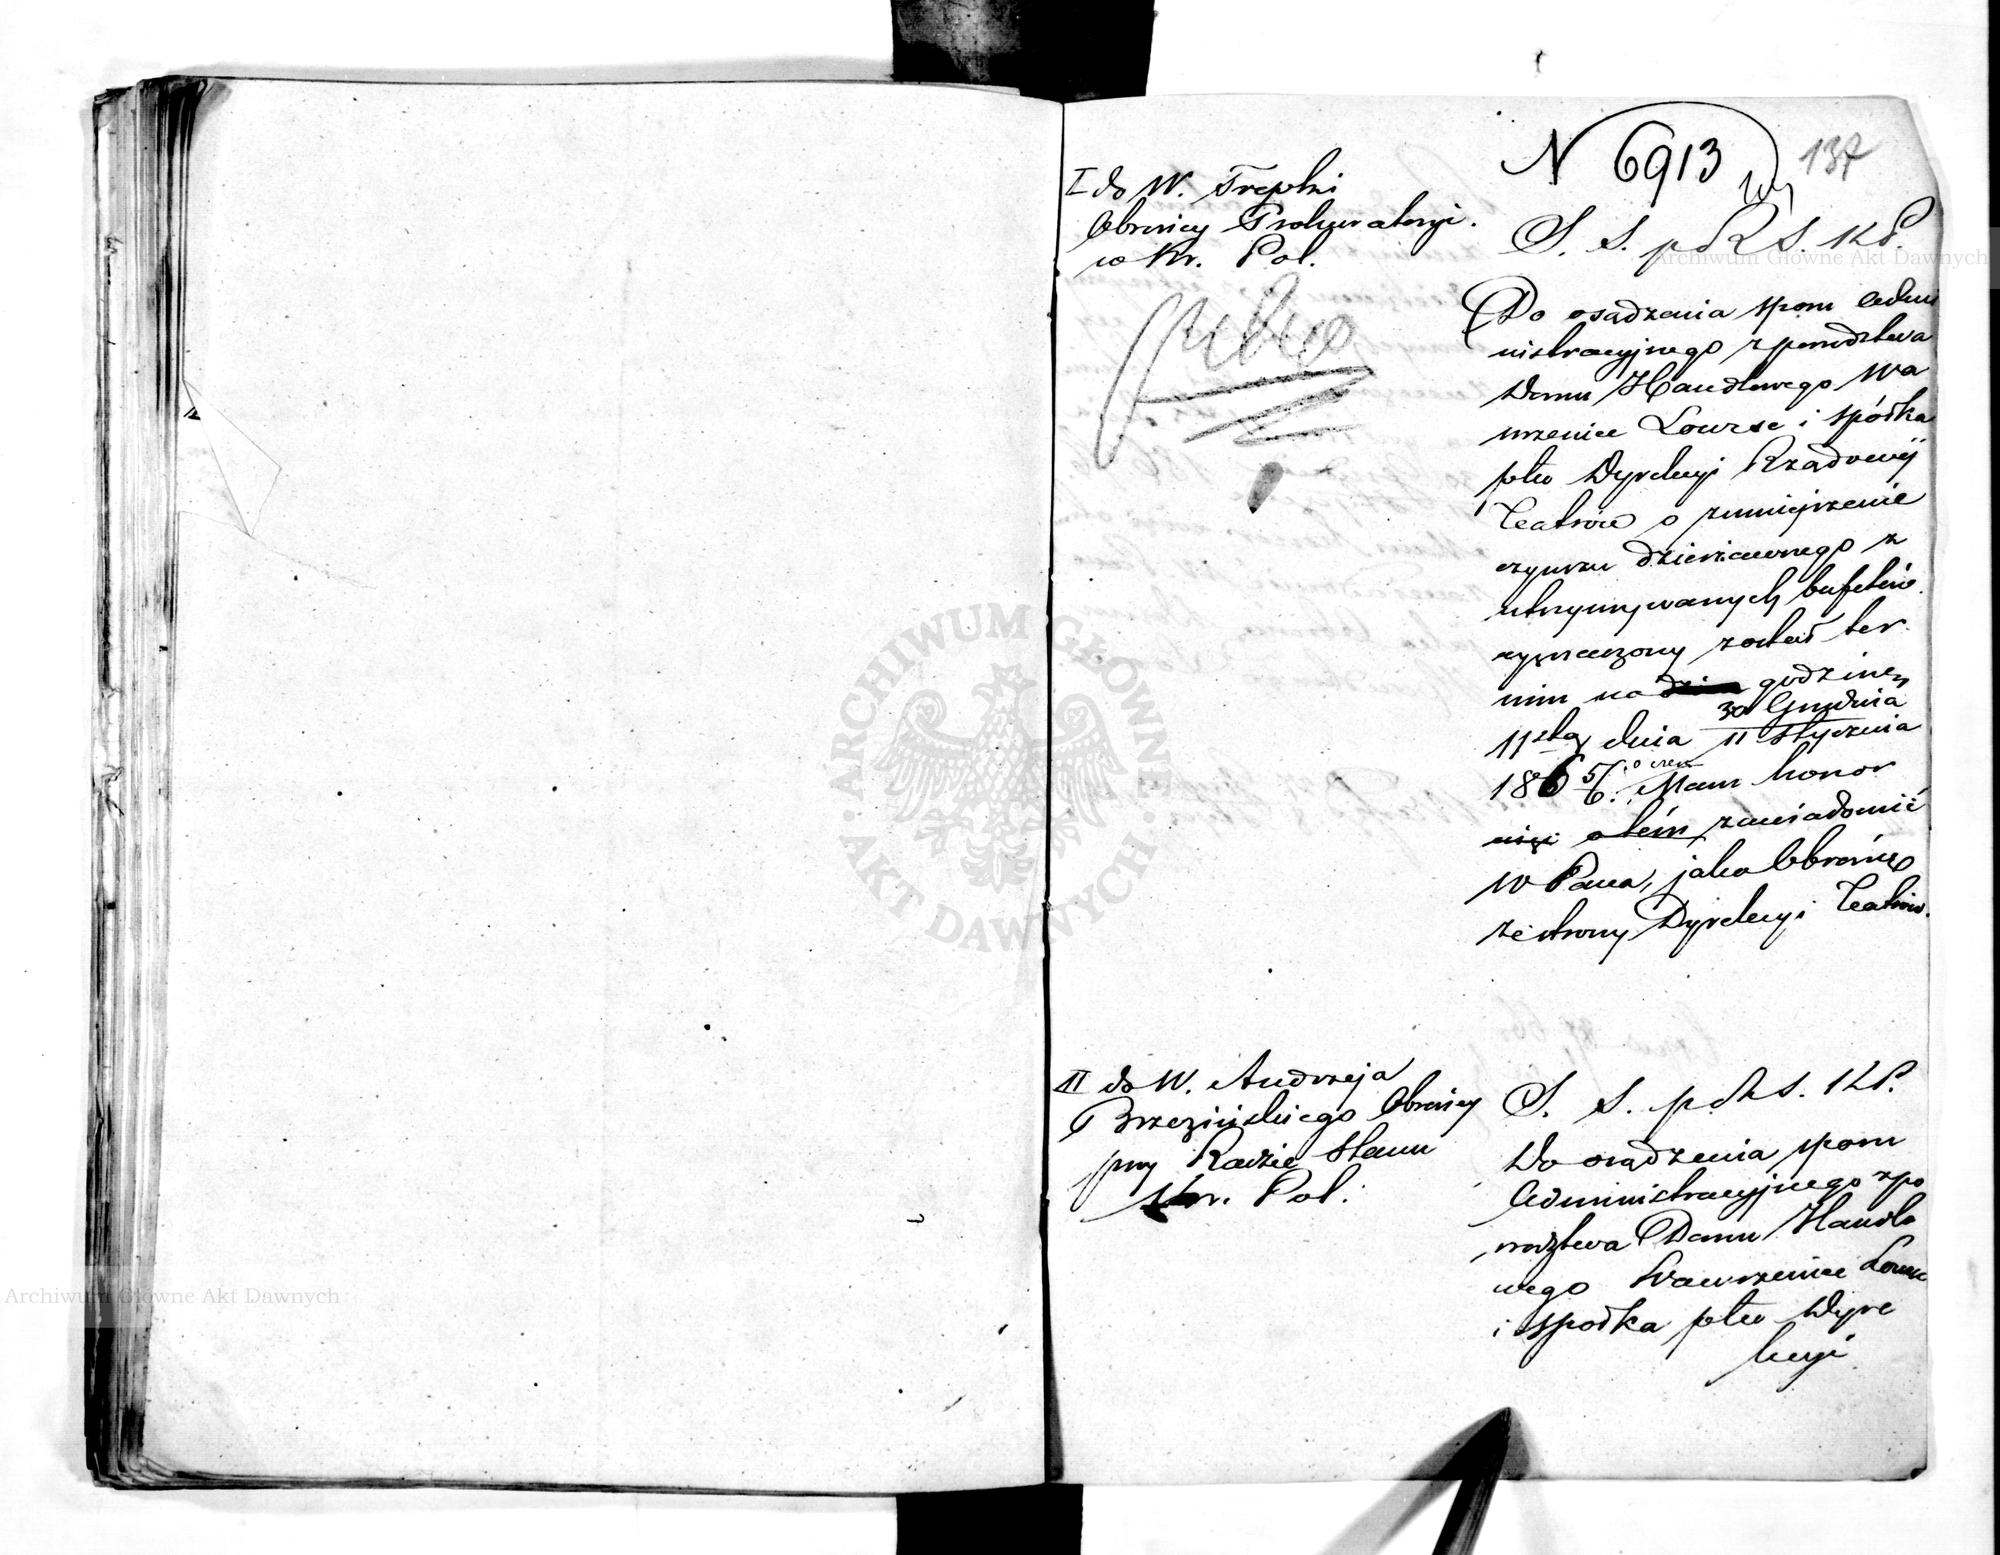 N 6913
137
I do W. Trepki
Obrońcy Prokuratoryi.
w Kr. Pol.
S. S. p d R S. KP.
Do osądzenia sporu Admi
nistracyjnego z powództwa
Domu Handlowego Wa
wrzeniec Lourse i spółka
pko Dyrekcyi Rządowéj
Teatrów o zmniejszenie
czynszu dzierżawnego z
utrzymywanych bufetów.
wyznaczony został ter
min na dzień godzinę
11stą dnia 30 Grudnia
11 Stycznia
1865/6. o czem Mam honor
o tém zawiadomić
W Pana, jako Obrońcę
ze strony Dyrekcyi Teatrów.
II do W. Andrzeja
Brzezińskiego Obrońcy
przy Radzie Stanu
Kr. Pol.
S. S. p d R S. KP.
Do osądzenia sporu
Administracyjnego z po
wództwa Domu Handlo
wego Wawrzeniec Lourse
i spółka pko Dyre
kcyi
ARCHIWUM GŁÓWNE AKT DAWNYCH
Archiwum Główne Akt Dawnych
Archiwum Główne Akt Dawnych